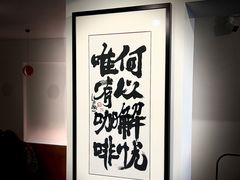 何以解忧
唯有咖啡